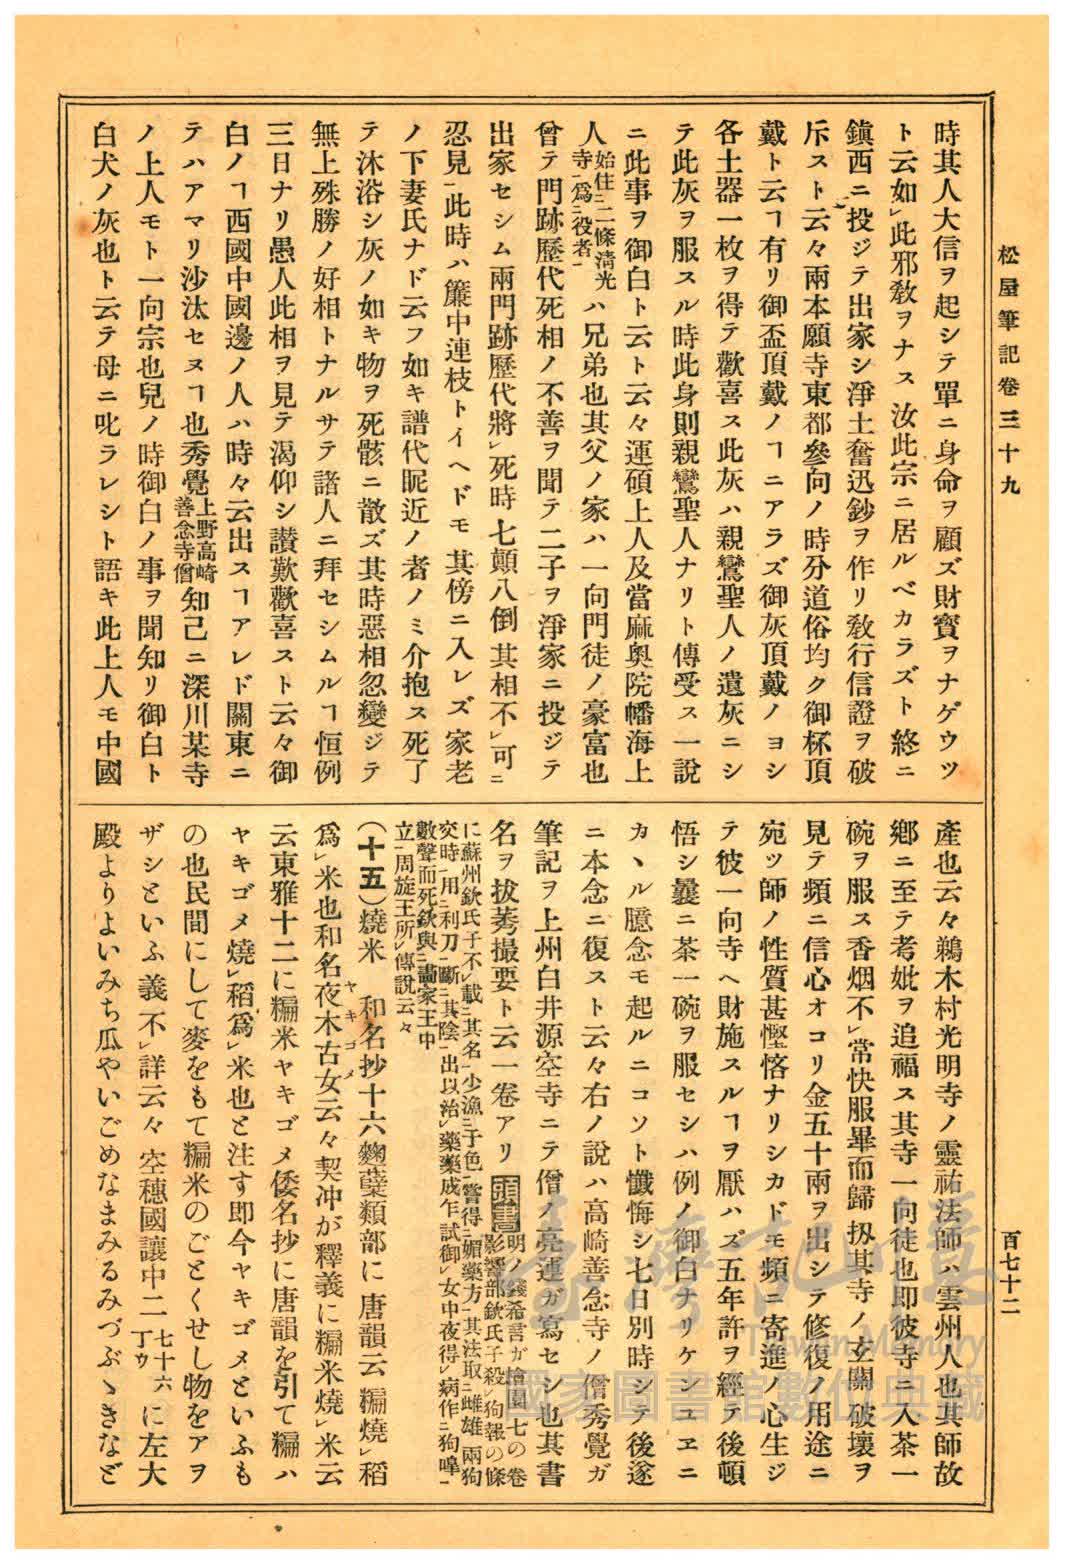 松屋筆記卷三十九
百七十二
時其人大信ヲ起シテ單ニ身命ヲ顧ズ財寶ヲナゲウツ
ト云如㆑此邪敎ヲナス汝此宗ニ居ルベカラズト終ニ
鎭西ニ投ジテ出家シ淨土奮迅鈔ヲ作リ敎行信證ヲ破
斥スト云々兩本願寺東都參向ノ時分道俗均ク御杯頂
戴ト云ヿ有リ御盃頂戴ノヿニアラズ御灰頂戴ノヨシ
各土器一枚ヲ得テ歡喜ス此灰ハ親鸞聖人ノ遺灰ニシ
テ此灰ヲ服スル時此身則親鸞聖人ナリト傳受ス一說
ニ此事ヲ御白ト云ト云々運碩上人及當麻奧院幡海上
人始住㆓二條淸光寺㆒爲㆓役者㆒ハ兄弟也其父ノ家ハ一向門徒ノ豪富也
曾テ門跡歷代死相ノ不善ヲ聞テ二子ヲ淨家ニ投ジテ
出家セシム兩門跡歷代將㆑死時七顚八倒其相不㆑可㆓
忍見㆒此時ハ簾中連枝トイヘドモ其傍ニ入レズ家老
ノ下妻氏ナド云フ如キ譜代昵近ノ者ノミ介抱ス死了
テ沐浴シ灰ノ如キ物ヲ死骸ニ散ズ其時惡相忽變ジテ
無上殊勝ノ好相トナルサテ諸人ニ拜セシムルヿ恒例
三日ナリ愚人此相ヲ見テ渴仰シ讃歎歡喜スト云々御
白ノヿ西國中國邊ノ人ハ時々云出スヿアレド關東ニ
テハアマリ沙汰セヌヿ也秀覺上野高崎善念寺僧知己ニ深川某寺
ノ上人モト一向宗也兒ノ時御白ノ事ヲ聞知リ御白ト
白犬ノ灰也ト云テ母ニ叱ラレシト語キ此上人モ中國
產也云々鵜木村光明寺ノ靈祐法師ハ雲州人也其師故
鄕ニ至テ考妣ヲ追福ス其寺一向徒也即彼寺ニ入茶一
碗ヲ服ス香烟不㆑常快服畢而歸扨其寺ノ玄關破壞ヲ
見テ頻ニ信心オコリ金五十兩ヲ出シテ修復ノ用途ニ
宛ツ師ノ性質甚慳悋ナリシカドモ頻ニ寄進ノ心生ジ
テ彼一向寺ヘ財施スルヿヲ厭ハズ五年許ヲ經テ後頓
悟シ曩ニ茶一碗ヲ服セシハ例ノ御白ナリケシユヱニ
カヽル臆念モ起ルニコソト懺悔シ七日別時シテ後遂
ニ本念ニ復スト云々右ノ說ハ高崎善念寺ノ僧秀覺ガ
筆記ヲ上州白井源空寺ニテ僧ノ亮運ガ寫セシ也其書
名ヲ拔萃撮要ト云一卷アリ 頭書 明ノ錢希言ガ檜園七の卷影響部欽氏子殺㆑狗報の條
に蘇州欽氏子不㆑載㆓其名㆒少漁㆓于色㆒嘗得㆓媚藥方㆒其法取㆓雌雄兩狗
交時㆒用㆓利刀㆒斷㆓其陰㆒出以治㆑藥藥成乍試御㆑女中夜得㆑病作㆓狗嘷㆒
數聲而死欽與㆓畫家王中
立㆒周旋王所㆑傳說云々
(十五)燒米 和名抄十六麴糵類部に唐韻云糄燒㆑稻
爲㆑米也和名夜木古女云々契沖が釋義に糄米燒㆑米云
ヤキゴメ
云東雅十二に糄米ヤキゴメ倭名抄に唐韻を引て糄ハ
ヤキゴメ燒㆑稻爲㆑米也と注す即今ヤキゴメといふも
の也民間にして麥をもて糄米のごとくせし物をアヲ
ザシといふ義不㆑詳云々空穗國讓中二七十六丁ウに左大
殿よりよいみち瓜やいごめなまみるみづぶゝきなど
臺灣記憶
Taiwan Memory
國家圖書館數位典藏